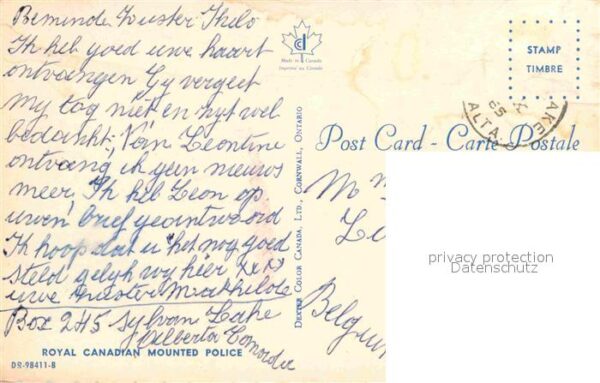 Beminde Zuster Thilo
Ik heb goed uwe kaart
ontvangen Gy vergeet
my tog niet en zyt wel
bedankt, Van Leontine
ontvang ik geen nieuws
meer. Ik heb Leon op
uwen brief geantwoord
Ik hoop dat u het nog goed
steld gelyk wy hier xxx
uwe Zuster Mathilde
Box 245 Sylvan Lake
Alberta Canada
ROYAL CANADIAN MOUNTED POLICE
DR-98411-B
Made in Canada
Imprimé au Canada
DEXTER COLOR CANADA, LTD., CORNWALL, ONTARIO
STAMP
TIMBRE
LAKE
65
ALTA.
Post Card - Carte Postale
M
Le
Belgium
privacy protection
Datenschutz